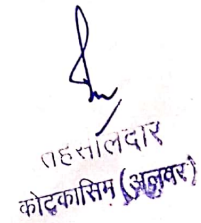 तहसीलदार
कोटकासिम (अलवर)